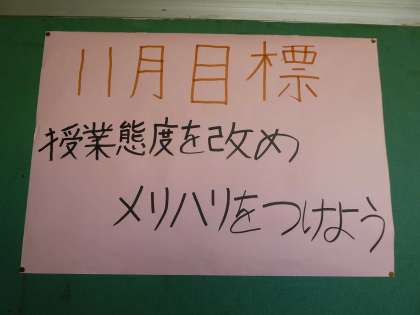 11月目標
授業態度を改め
メリハリをつけよう